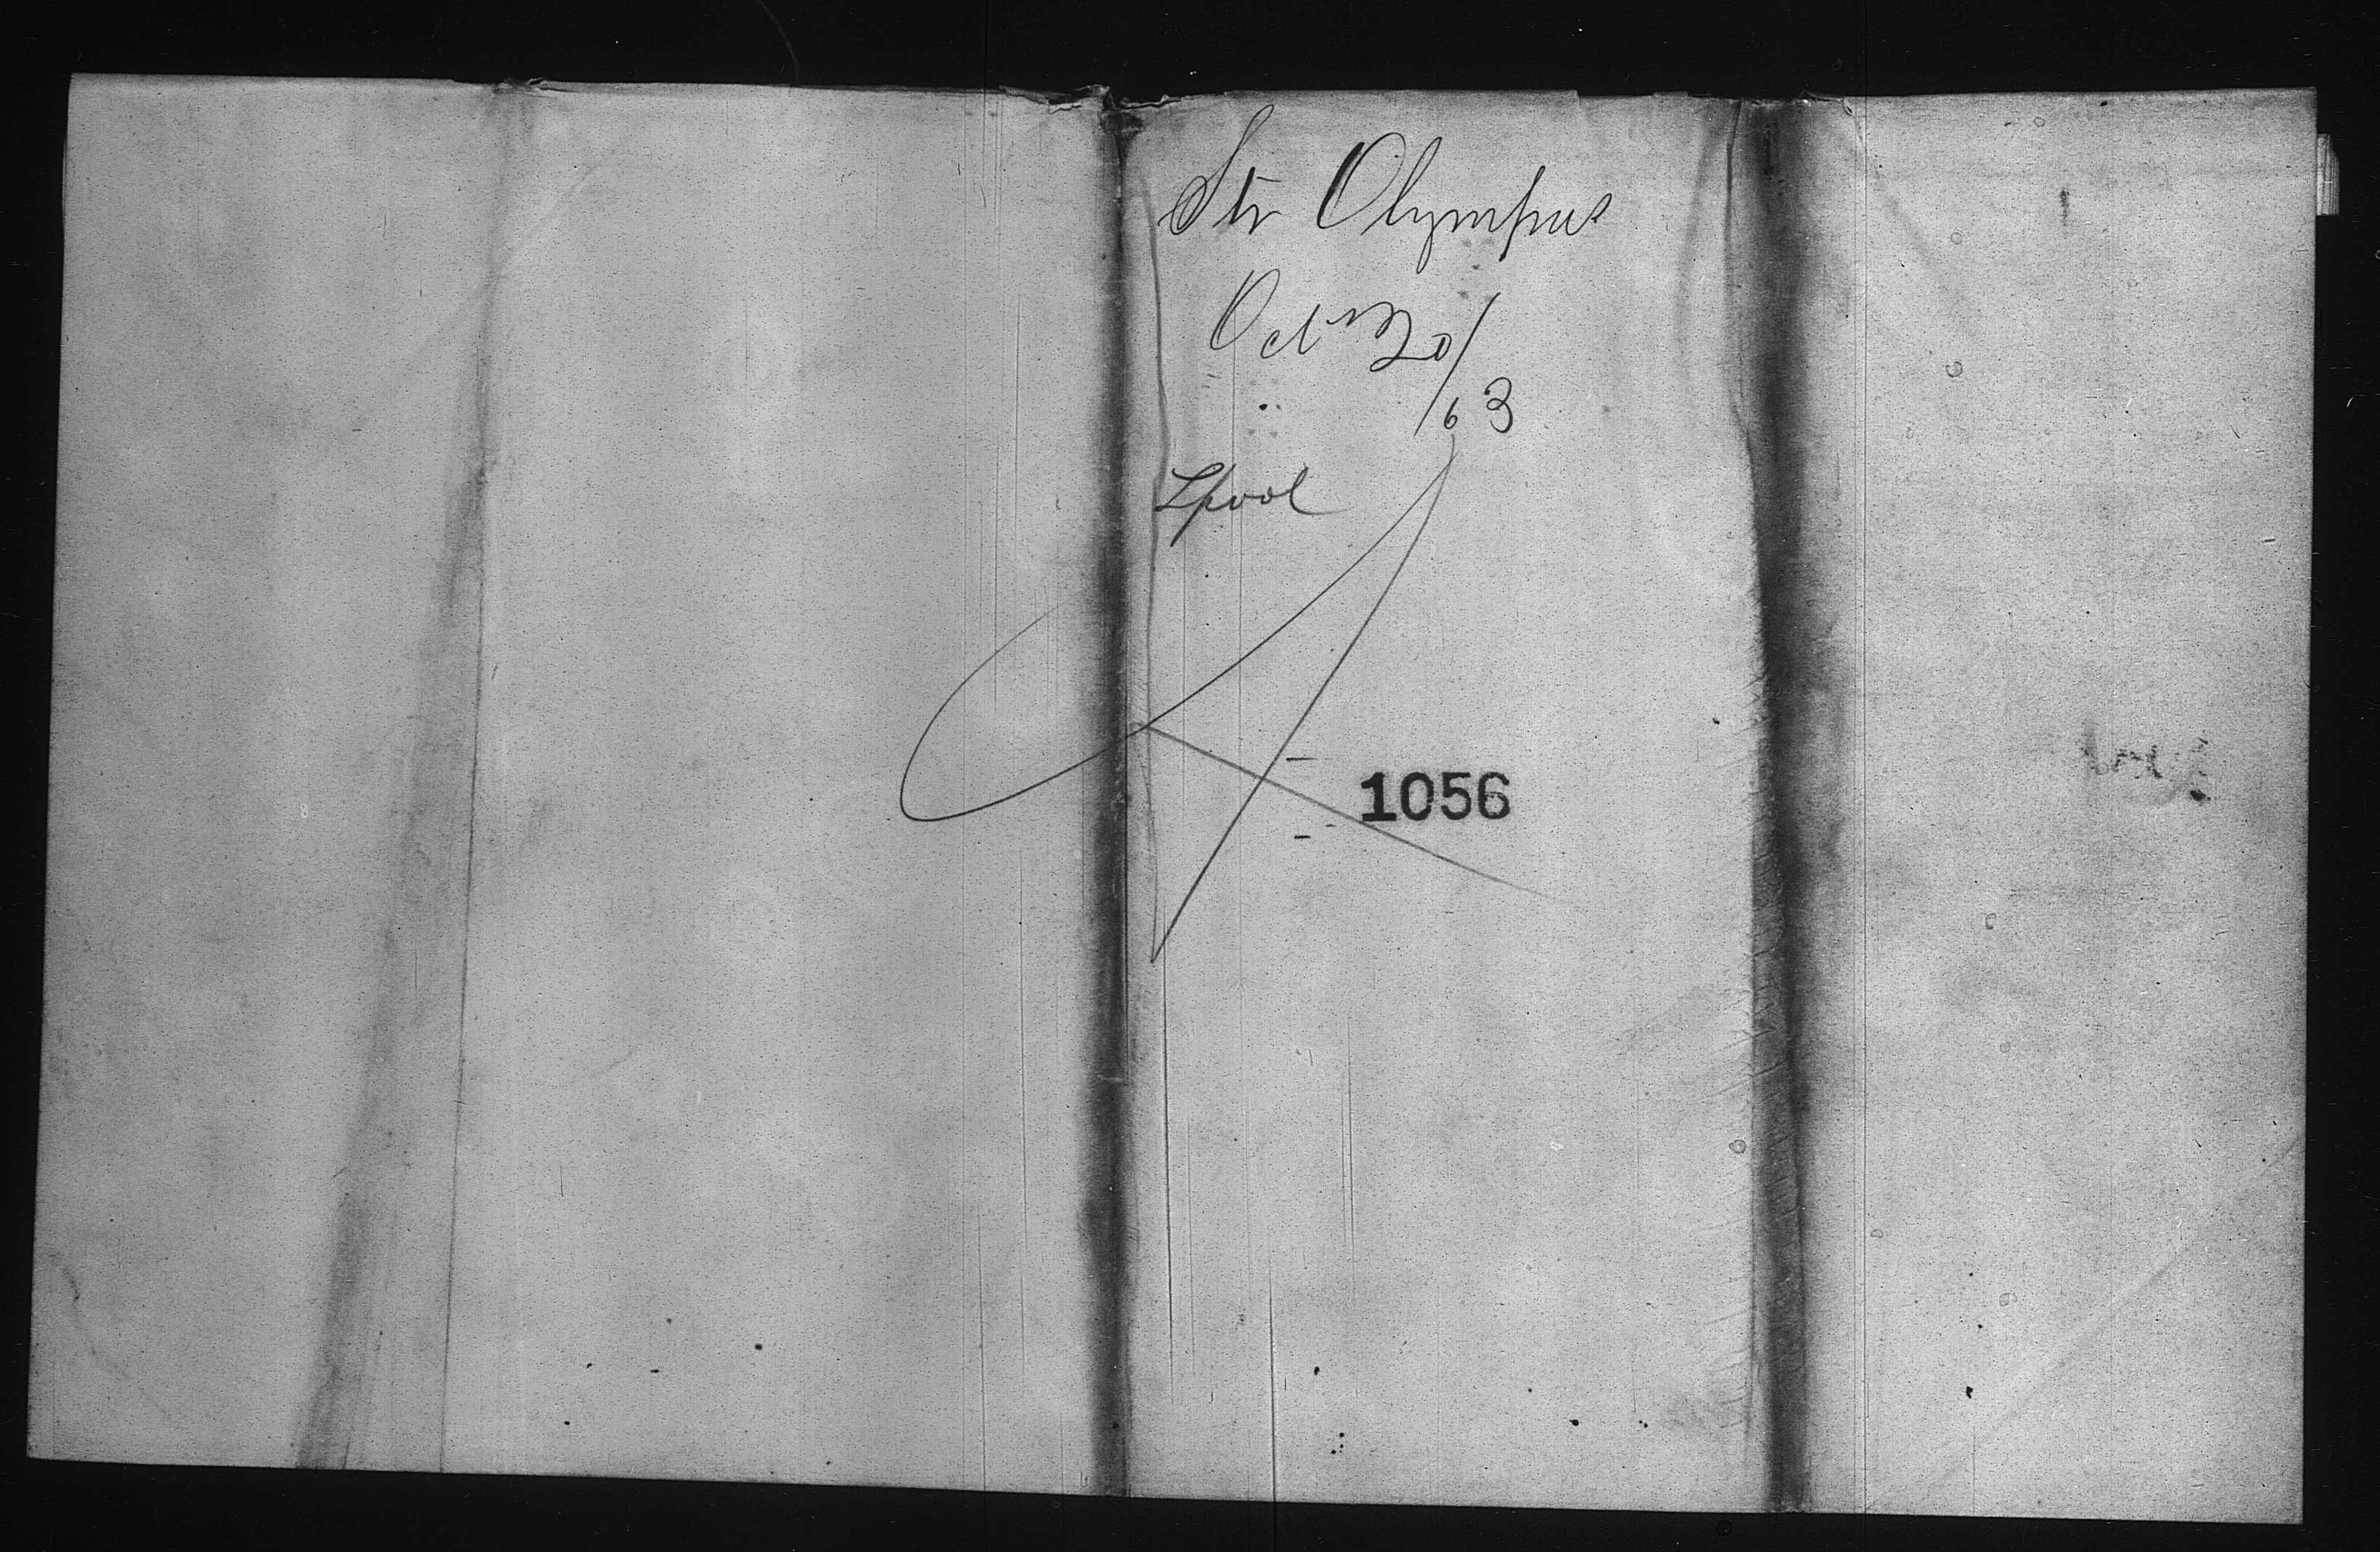 Str Olympus
Octr 20/63
Lpool
1056